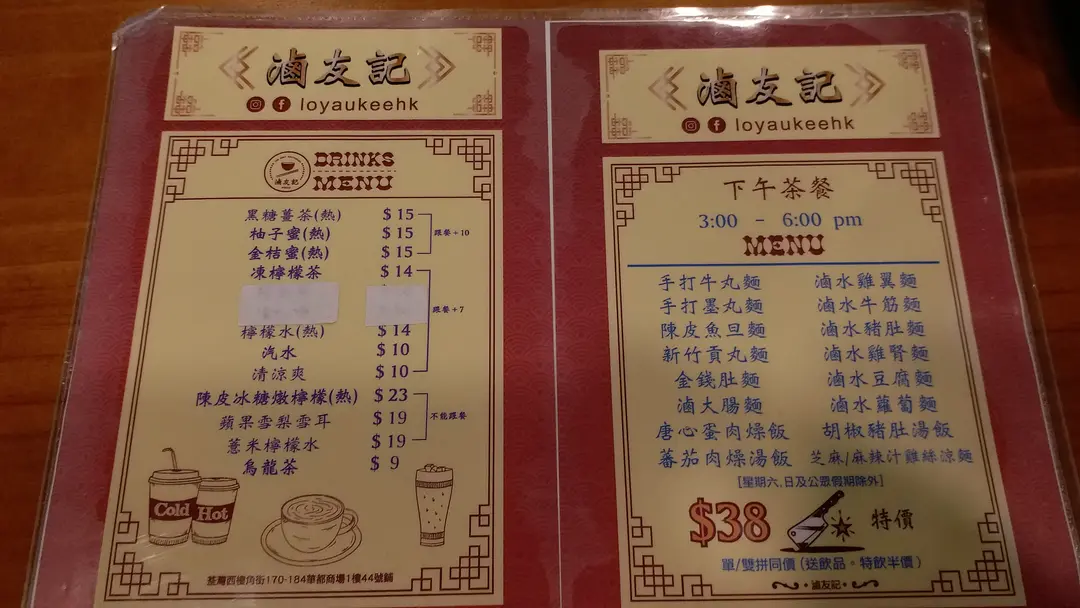 滷友記
loyaukeehk
滷友記
DRINKS
MENU
黑糖薑茶(熱) $15
柚子蜜(熱) $15
金桔蜜(熱) $15
跟餐+10
凍檸檬茶 $14
檸檬水(熱) $14
汽水 $10
清涼爽 $10
跟餐+7
陳皮冰糖燉檸檬(熱) $23
蘋果雪梨雪耳 $19
薏米檸檬水 $19
不能跟餐
烏龍茶 $9
Cold Hot
荃灣西樓角街170-184華都商場1樓44號舖
滷友記
loyaukeehk
下午茶餐
3:00 - 6:00 pm
MENU
手打牛丸麵 滷水雞翼麵
手打墨丸麵 滷水牛筋麵
陳皮魚旦麵 滷水豬肚麵
新竹貢丸麵 滷水雞腎麵
金錢肚麵 滷水豆腐麵
滷大腸麵 滷水蘿蔔麵
唐心蛋肉燥飯 胡椒豬肚湯飯
蕃茄肉燥湯飯 芝麻/麻辣汁雞絲涼麵
[星期六,日及公眾假期除外]
$38 特價
單/雙拼同價(送飲品。特飲半價)
滷友記